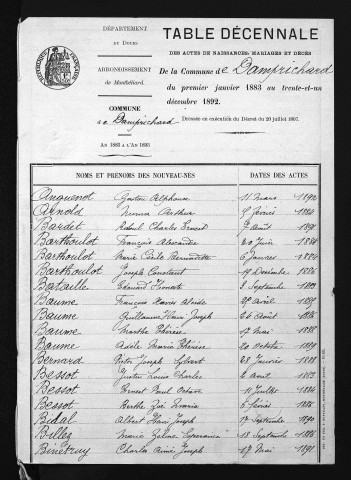 DÉPARTEMENT
DU DOUBS
ARRONDISSEMENT
de Montbéliard.
COMMUNE
de Damprichard
AN 1883 A L'AN 1893
TABLE DÉCENNALE
DES ACTES DE NAISSANCES, MARIAGES ET DÉCÈS
De la Commune de Damprichard
du premier janvier 1883 au trente-et-un
décembre 1892.
Dressée en exécution du Décret du 20 juillet 1807.
NOMS ET PRÉNOMS DES NOUVEAU-NÉS DATES DES ACTES
Anguenot Gaston Alphonse 11 Mars 1892
Arnold Arthur 5 février
Bardet Raoul Charles Ernest 7 Août 1891
Barthoulot François Alexandre 20 Juin 1884
Barthoulot Marie Cécile Bernadette 6 Janvier
Barthoulot Joseph Constant 19 Décembre 1886
Bataille Edouard 8 Septembre
Baume François Xavier 25 Avril
Baume Guillaume Henri Joseph 26 Août
Baume Marthe Thérèse 17 Mai 1888
Baume Adèle Marie Thérèse 20 Octobre 1889
Bernard Victor Joseph 28 Janvier 1888
Bessot Louis Charles Août 1883
Bessot Ernest Paul 11 Juillet 1884
Bessot Berthe Zoé Maria 5 février 1886
Bidal Albert Joseph 17 Septembre 1890
Billey Marie 18 Septembre
Binétruy Charles Aimé Joseph 27 Mai 1891